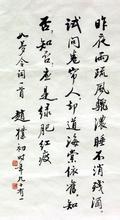 昨夜雨疏風驟濃睡不消残酒
試问卷帘人却道海棠依舊知
否知否應是緑肥红瘦
如夢令词一首
趙樸初時年九十有一